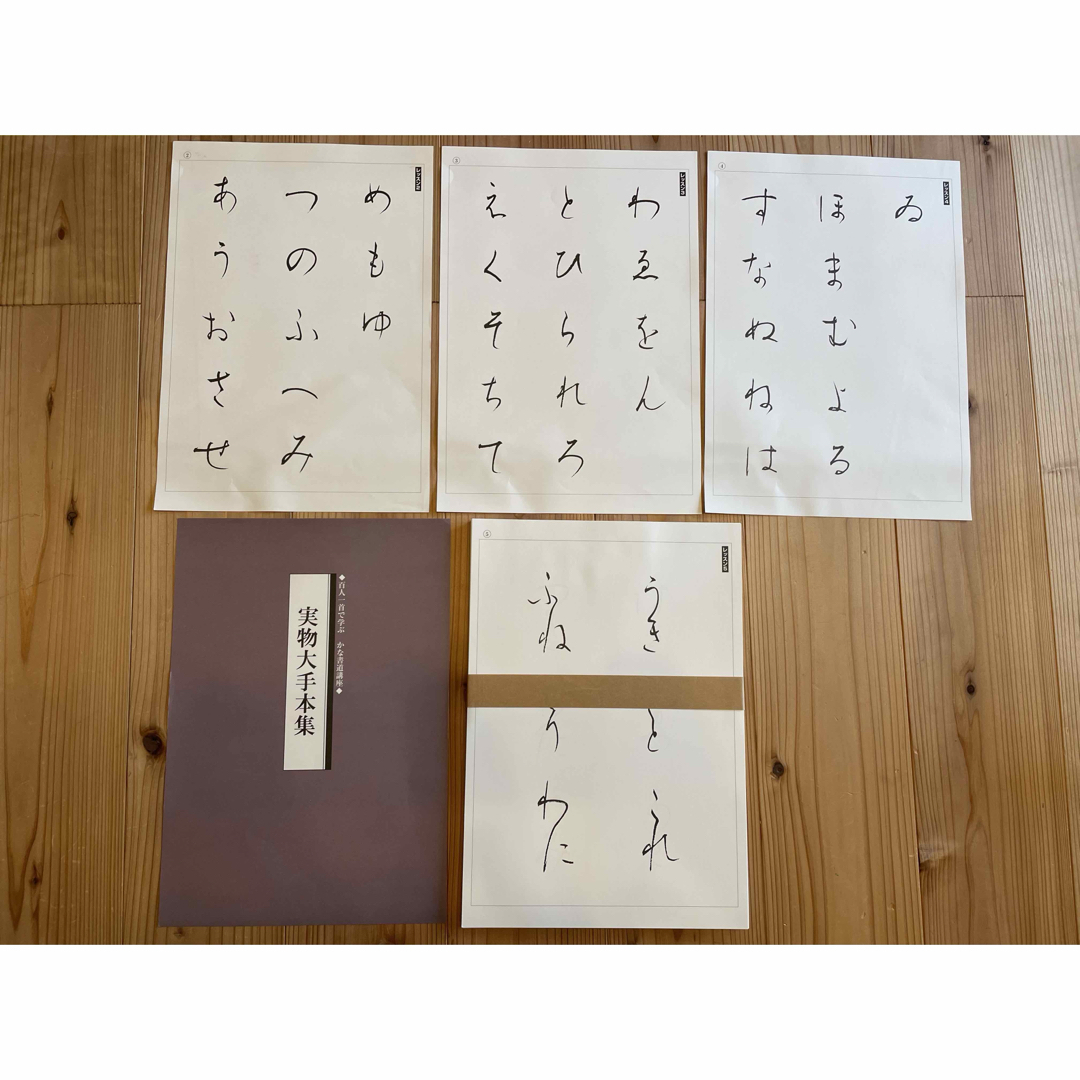 ②
レッスン2
あうおさせ
つのふへみ
めもゆ
③
レッスン3
えくそちて
とひられろ
わゑをん
④
レッスン4
すなぬねは
ほまむよる
ゐ
◆百人一首で学ぶ かな書道講座◆
実物大手本集
レッスン
うき
と
これ
ふね
う
わに